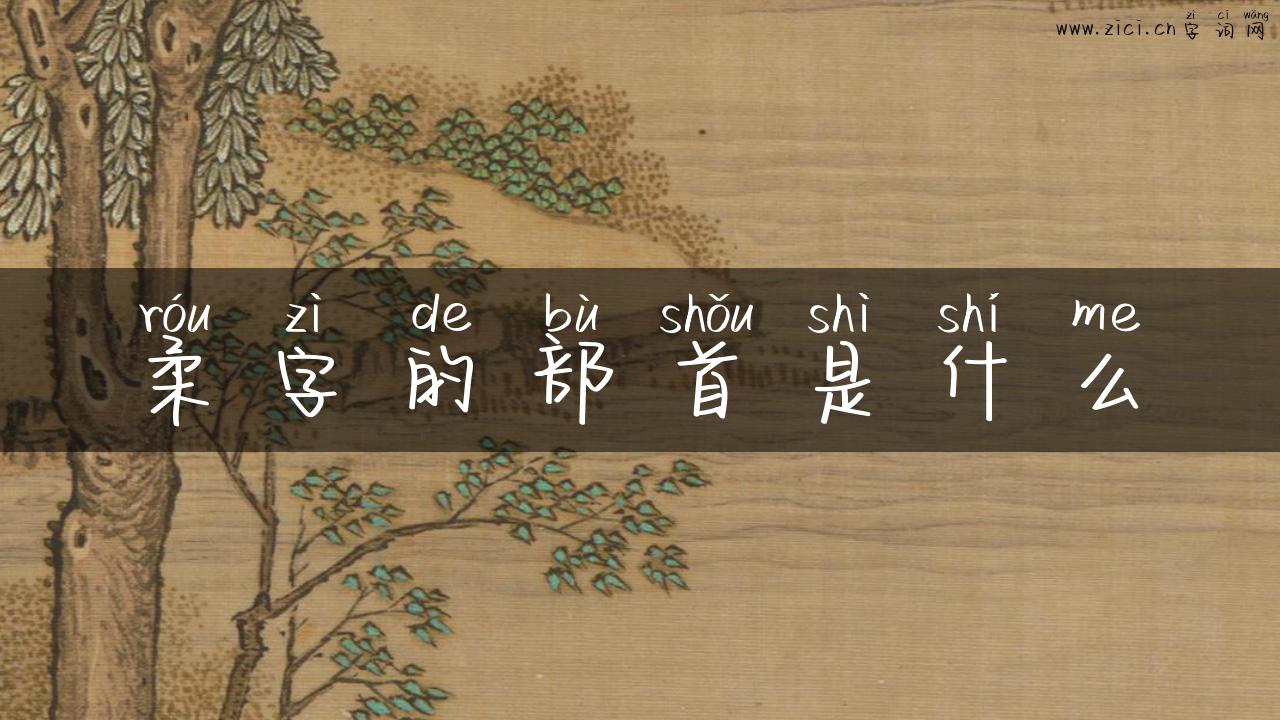 zì cí wǎng
www.zici.cn 字 词 网
róu zì de bù shǒu shì shí me
柔 字 的 部 首 是 什 么